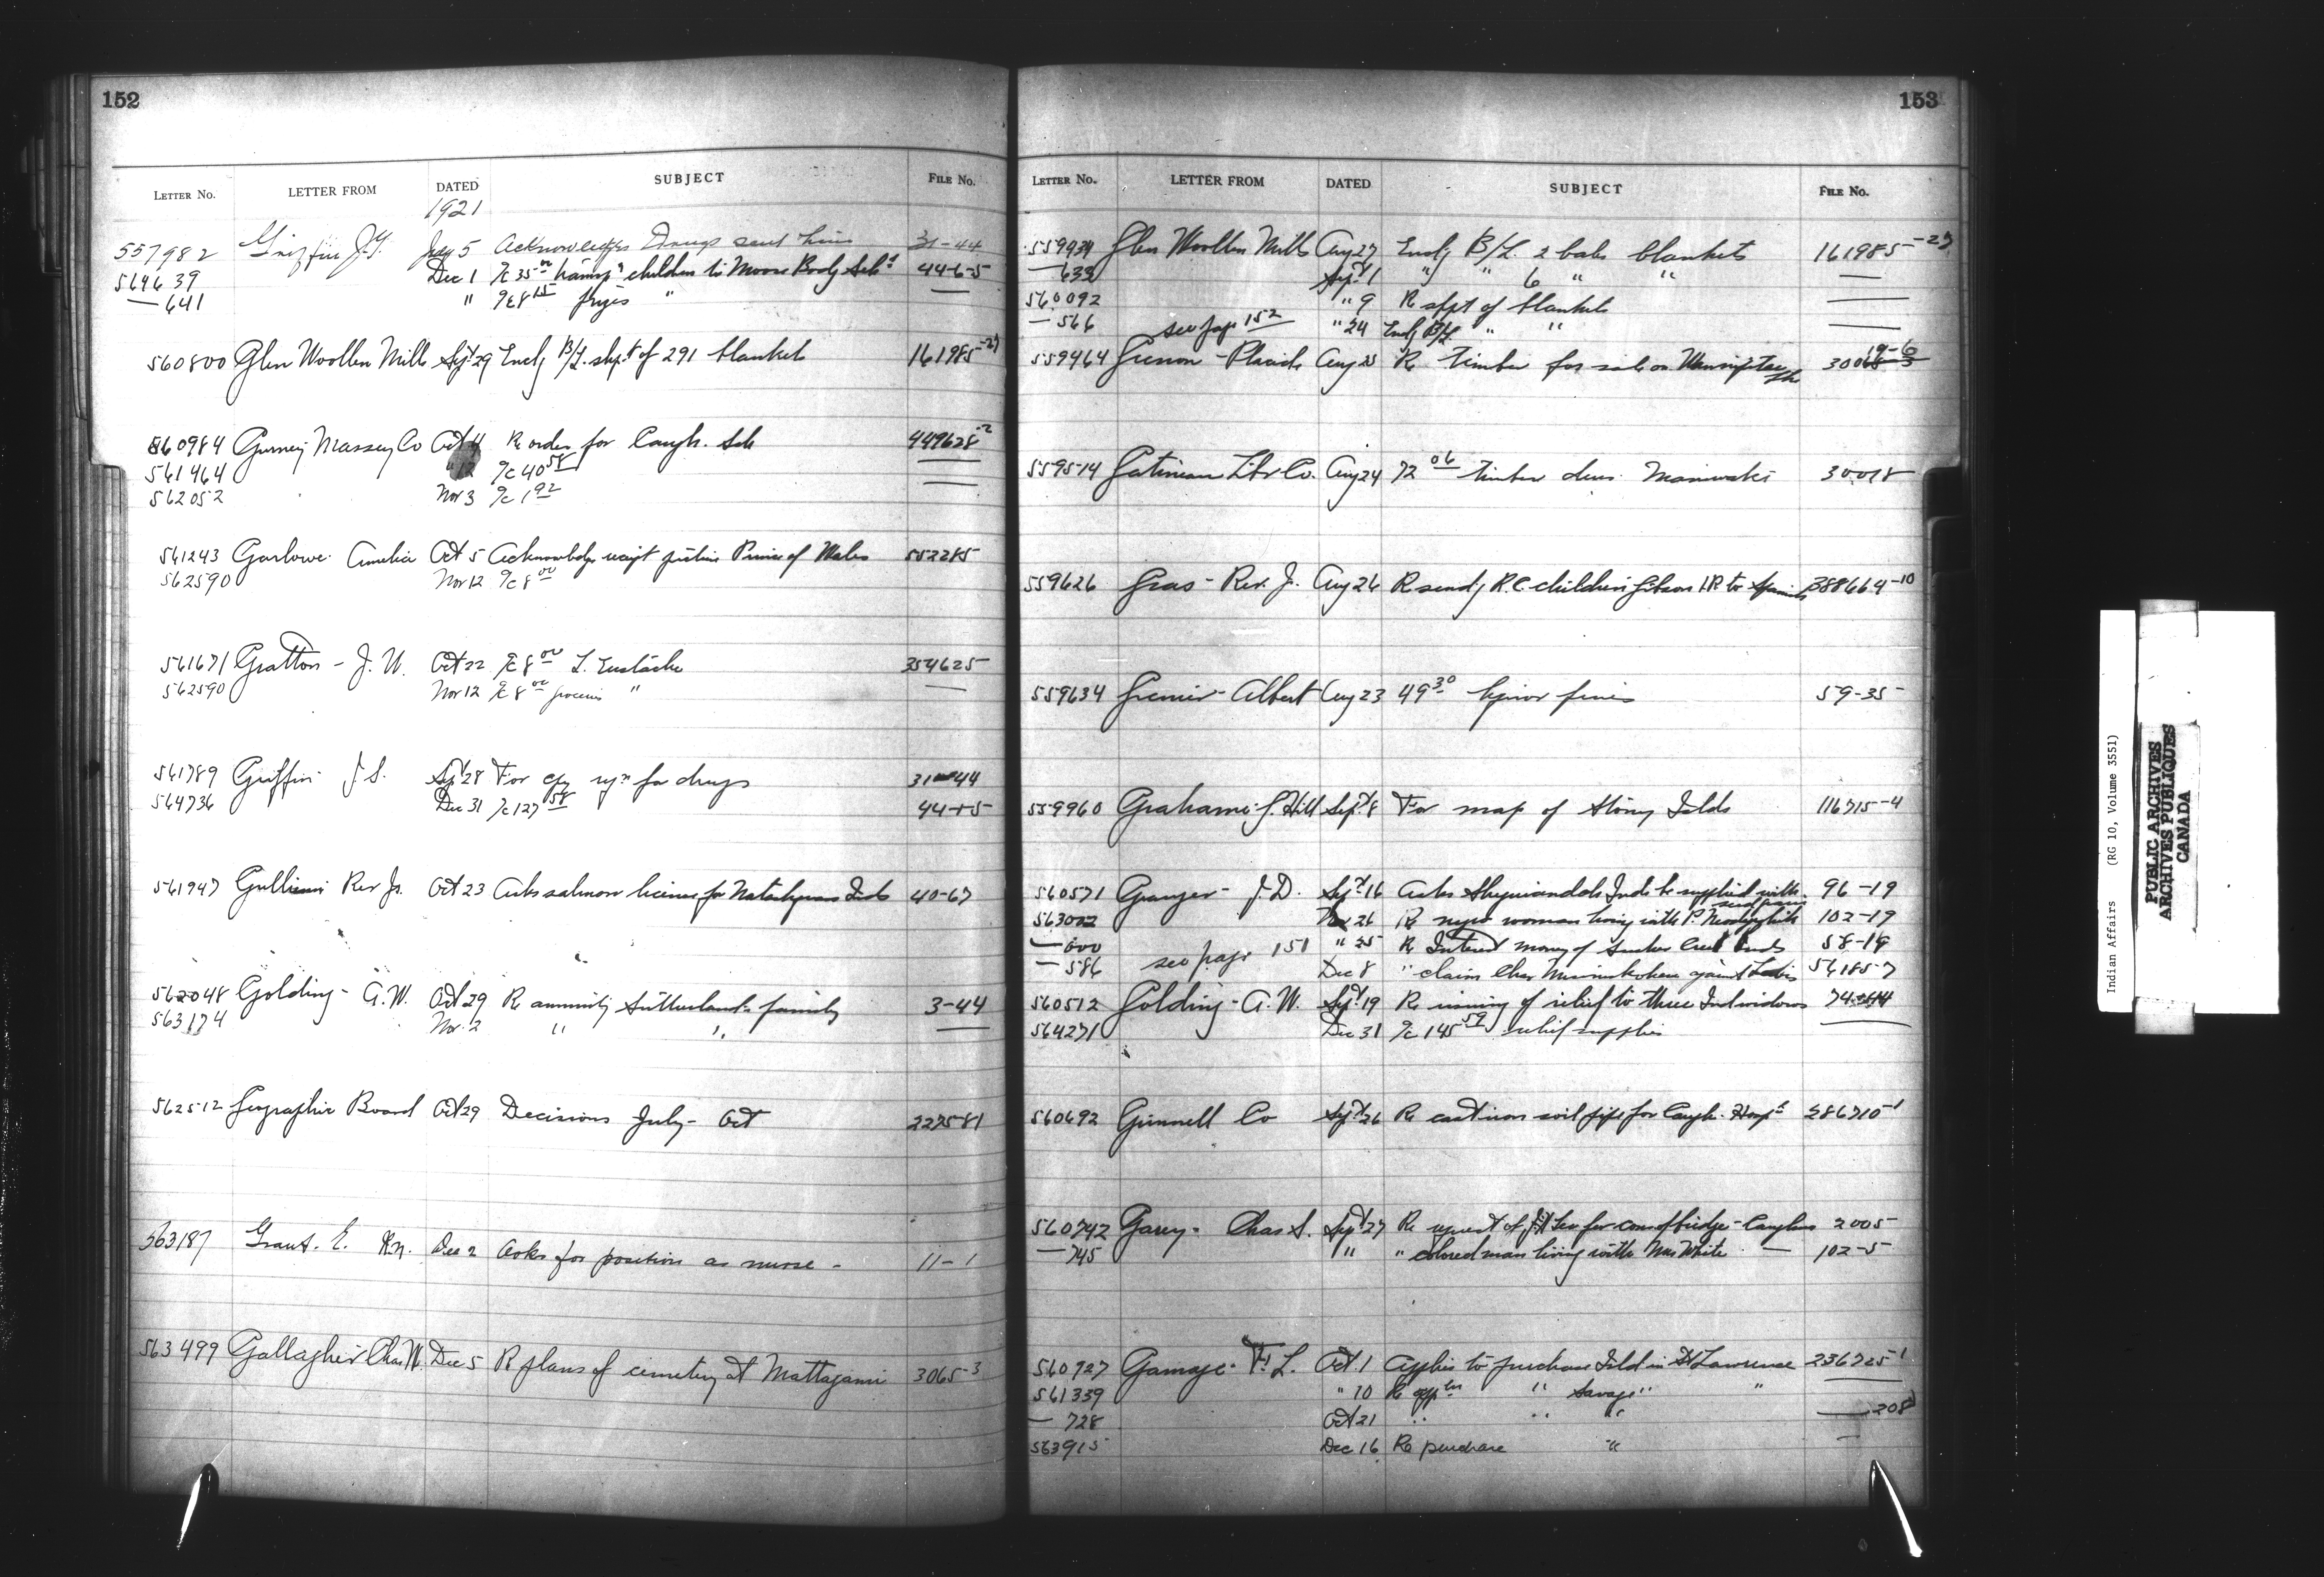 152
LETTER No. LETTER FROM DATED SUBJECT FILE No.
1921
557982 Griffin J.G. July 5 Acknowledges Drugs sent him 31-44
564639 Dec 1 a/c 35 00 transp'n children to Moose Body Sch'l 44-6-5
— 641 " a/c 8 15 " —
560800 Glen Woollen Mills Sept 29 Encl'g B/L. shpt of 291 blankets 161985-27
560984 Gurney Massey Co Oct 4 Re order for Caugh. Sch 449628-2
561464 " 12 a/c 40 58 —
562052 Nov 3 a/c 1 92 —
561243 Garlowe Amelia Oct 5 Acknowledges receipt picture Prince of Wales 552285
562590 Nov 12 a/c 8 00
561671 Gratton - J. W. Oct 22 a/c 8 00 L. Eustache 354625
562590 Nov 12 a/c 8 00 groceries " —
561789 Griffin J.S. Sept 28 For for drugs 31-44
564736 Dec 31 a/c 127 58 44-1-5
561947 Gullieni Rev Js. Oct 23 Asks salmon license for Natashquan Inds 40-67
562048 Golding - A.W. Oct 29 Re annuity Sutherland family 3-44
563174 Nov. 2 " " —
562512 Geographic Board Oct 29 Decisions July - Oct 227581
563187 Grant. E. Rn. Dec 2 Asks for position as nurse - 11-1
563499 Gallagher Chas W. Dec 5 Re plans of cemetery at Mattagami 3065-3
153
LETTER No. LETTER FROM DATED SUBJECT FILE No.
559939 Glen Woollen Mills Aug 27 Encl'g B/L. 2 bales blankets 161985-27
— 633 Sept 1 " " 6 " " —
560092 " 9 Re shpt of blankets —
— 566 see page 152 " 24 Encl'g B/L " " —
559464 Grenon - Placide Aug 25 Re timber for sale on 19-6
559514 Gatineau Lbr Co. Aug 24 72 06 timber dues Maniwaki 30018
559626 Gras - Rev. J. Aug 26 Re send'g R.C. children Gibson I.R to Spanish 388664-10
559634 Grenier - Albert Aug 23 49 30 liquor fines 59-35
559960 Grahame J. Hill Sept 8 For map of Stony Islds 116715-4
560571 Granger - J.D. Sept 16 Asks Sheguiandah Inds be supplied with seed grain 96-19
563002 Nov 26 Re negro woman living with P. 102-19
— 000 " 25 Re Interest money of Sucker Creek Inds 58-19
— 586 see page 151 Dec 8 " claim Chas against 561857
560512 Golding - A. W. Sept 19 Re issuing of relief to three Ind widows 74-44
564271 Dec 31 a/c 145 59 relief supplies —
560692 Grinnell Co Sept 26 Re cast iron soil pipe for Caugh. Hosp'l 286710-1
560742 Garey - Chas S. Sept 27 Re request of for con of bridge - Caughna 2005
— 745 " " colored man living with Mrs White — 102-5
560927 Gamage - F. L. Oct. 1 Applies to purchase Isld in St Lawrence 236725-1
561339 " 10 Re app'tn " Savage " "
— 728 Oct 21 " " " — 208
563915 Dec 16 Re purchase " —
Indian Affairs (RG 10, Volume 3551)
PUBLIC ARCHIVES
ARCHIVES PUBLIQUES
CANADA